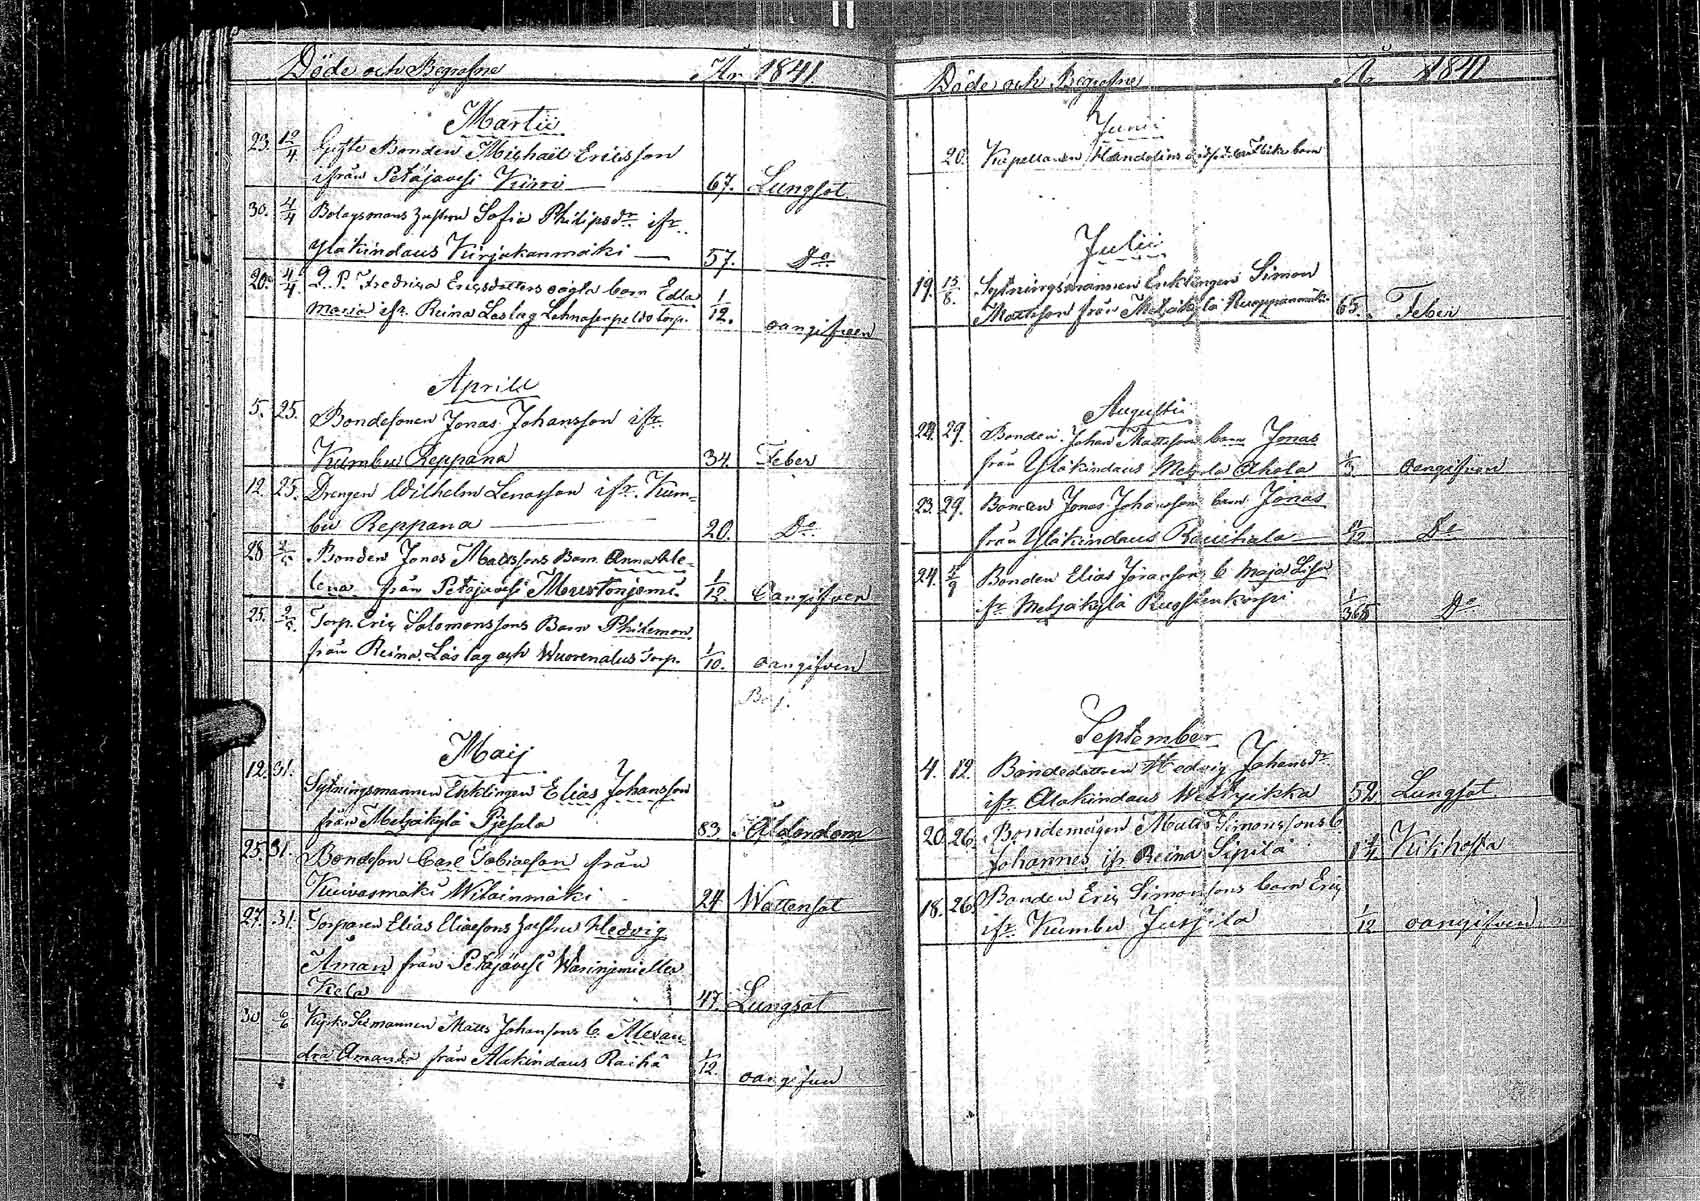 Döde och Begrafne År 1841
Martii
23. 12/4. Gifte Bonden Michael Ericsson
ifrån Petäjävesi Kirri 67. Lungsot
30. 4/4 Bolagsmans hustrun Sofia Philipsdr ifr.
Yläkindaus Kirjukanmäki 57. Do
20. 4/4. Q. P. Fredrica Ericsdotters oägta barn Edla
Maria ifr. Reina Laslag Torp. 1/12. oangifven
Aprill
5. 25. Bondesonen Jonas Johansson ifr.
Kumbu Reppana 34. Feber
12. 25. Drengen Wilhelm Lenasson ifr. Kum-
bu Reppana 20. Do
28 2/5. Bonden Jonas Mattssons Barn Anna He-
lena från Petäjävesi 1/12. Oangifven
25. 2/5. Torp. Eric Salomonssons Barn Philemon.
från Reina Laslag och Torp. 1/10. oangifven
Maij
12. 31. Sytningsmannen Enklingen Elias Johansson
från Metzäkylä Pjesala 83. Ålderdom
25. 31. Bondeson Carl Tobiaeson från
Kuivasmäki Wilainmäki 24 Wattensot
27. 31. Torparen Elias Eliaesons hustru Hedvig
Åman från Petäjävesi
47. Lungsot
30 6/6 Matts Johansons b. Alexan-
dra Amanda från Alakindaus Raihä 1/12. oangifven
Döde och Begrafne År 1841
Junii
20. Kapellanen barn
Julii
19. 15/8. Sytningsmannen Enklingen Simon
Mattsson från Metzäkylä 65. Feber
Augusti
24. 29. Bonden Johan Mattsson barn Jonas
från Yläkindaus Ahola 1/3 oangifven
23. 29. Bonden Jonas Johansson barn Jonas
från Yläkindaus Rauhala Do
24. 5/9 Bonden Elias Jöransson b Maja Lisa
ifr Metzäkylä 1/365 Do
September
4. 12. Bondedottren Hedvig Johansdr
ifr. Alakindaus 52 Lungsot
20. 26. Bondemågen Matts Simonssons b
Johannes ifr Reina Sipilä 1 1/4. Kikhosta
18. 26. Bonden Eric Simonssons barn Eric
ifr. Kumbu Jussila 1/12 oangifven